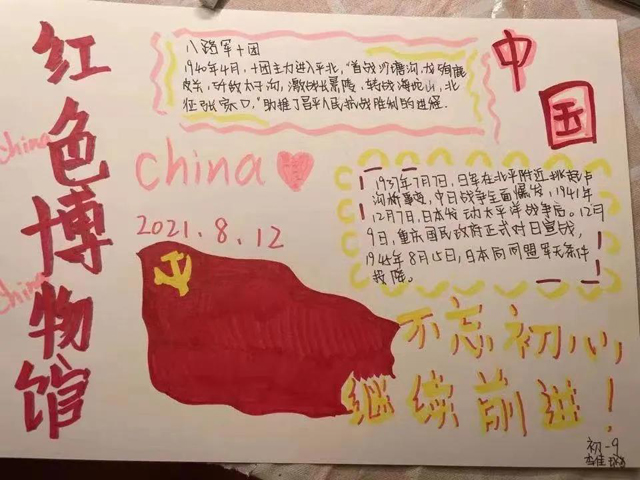 红色博物馆
八路军十团
1940年4月,十团主力进入平北,"首战沙塘沟,
激战
北
征张家口,"助推了昌平人民抗战胜利的进程.
中国
China
China
china
2021.8.12
1937年7月7日,日军在北平附近挑起卢
沟桥事变,中日战争全面爆发,1941年
12月7日,日本发动太平洋战争后。12月
9日,重庆国民政府正式对日宣战,
1945年8月15日,日本向同盟军无条件
投降。
不忘初心,
继续前进!
初一9